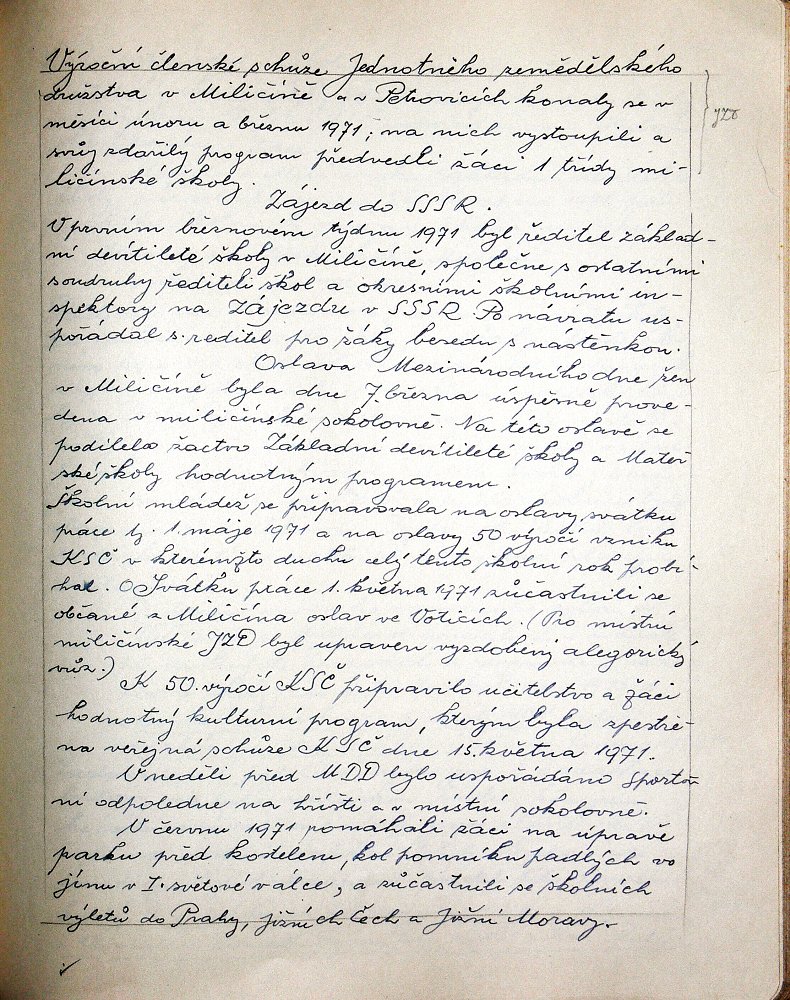 Výroční členské schůze Jednotného zemědělského
družstva v Miličíně a v Petrovicích konaly se v
měsíci únoru a březnu 1971; na nich vystoupili a
svůj zdařilý program předvedli žáci 1 třídy mi-
ličínské školy.
JZD
Zájezd do SSSR.
V prvním březnovém týdnu 1971 byl ředitel základ-
ní devítileté školy v Miličíně, společne s ostatními
soudruhy řediteli škol a okresními školními in-
spektory na zájezdu v SSSR. Po návratu us-
pořádal s. ředitel pro žáky besedu s nástěnkou.
Oslava Mezinárodního dne žen
v Miličíně byla dne 7. března úspěšně prove-
dena v miličínské sokolovně. Na této oslavě se
podílelo žactvo Základní devítileté školy a Mateř
ské školy hodnotným programem.
Školní mládež se připravovala na oslavy svátku
práce tj. 1. máje 1971 a na oslavy 50 výročí vzniku
KSČ v kterémžto duchu celý tento školní rok probí-
hal. O Svátku práce 1. května 1971 zůčastnili se
občané z Miličína oslav ve Voticích. (Pro místní
miličínské JZD byl upraven vyzdobený alegorický
vůz.)
K 50. výročí KSČ připravilo učitelstvo a žáci
hodnotný kulturní program, kterým byla zpestře-
na veřejná schůze KSČ dne 15. května 1971.
V neděli před MDD bylo uspořádáno sportov
ní odpoledne na hřišti a v místní sokolovně.
V červnu 1971 pomáhali žáci na úpravě
parku před kostelem, kol pomníku padlých vo
jínu v I. světové válce, a zůčastnili se školních
výletů do Prahy, jižních Čech a Jižní Moravy.